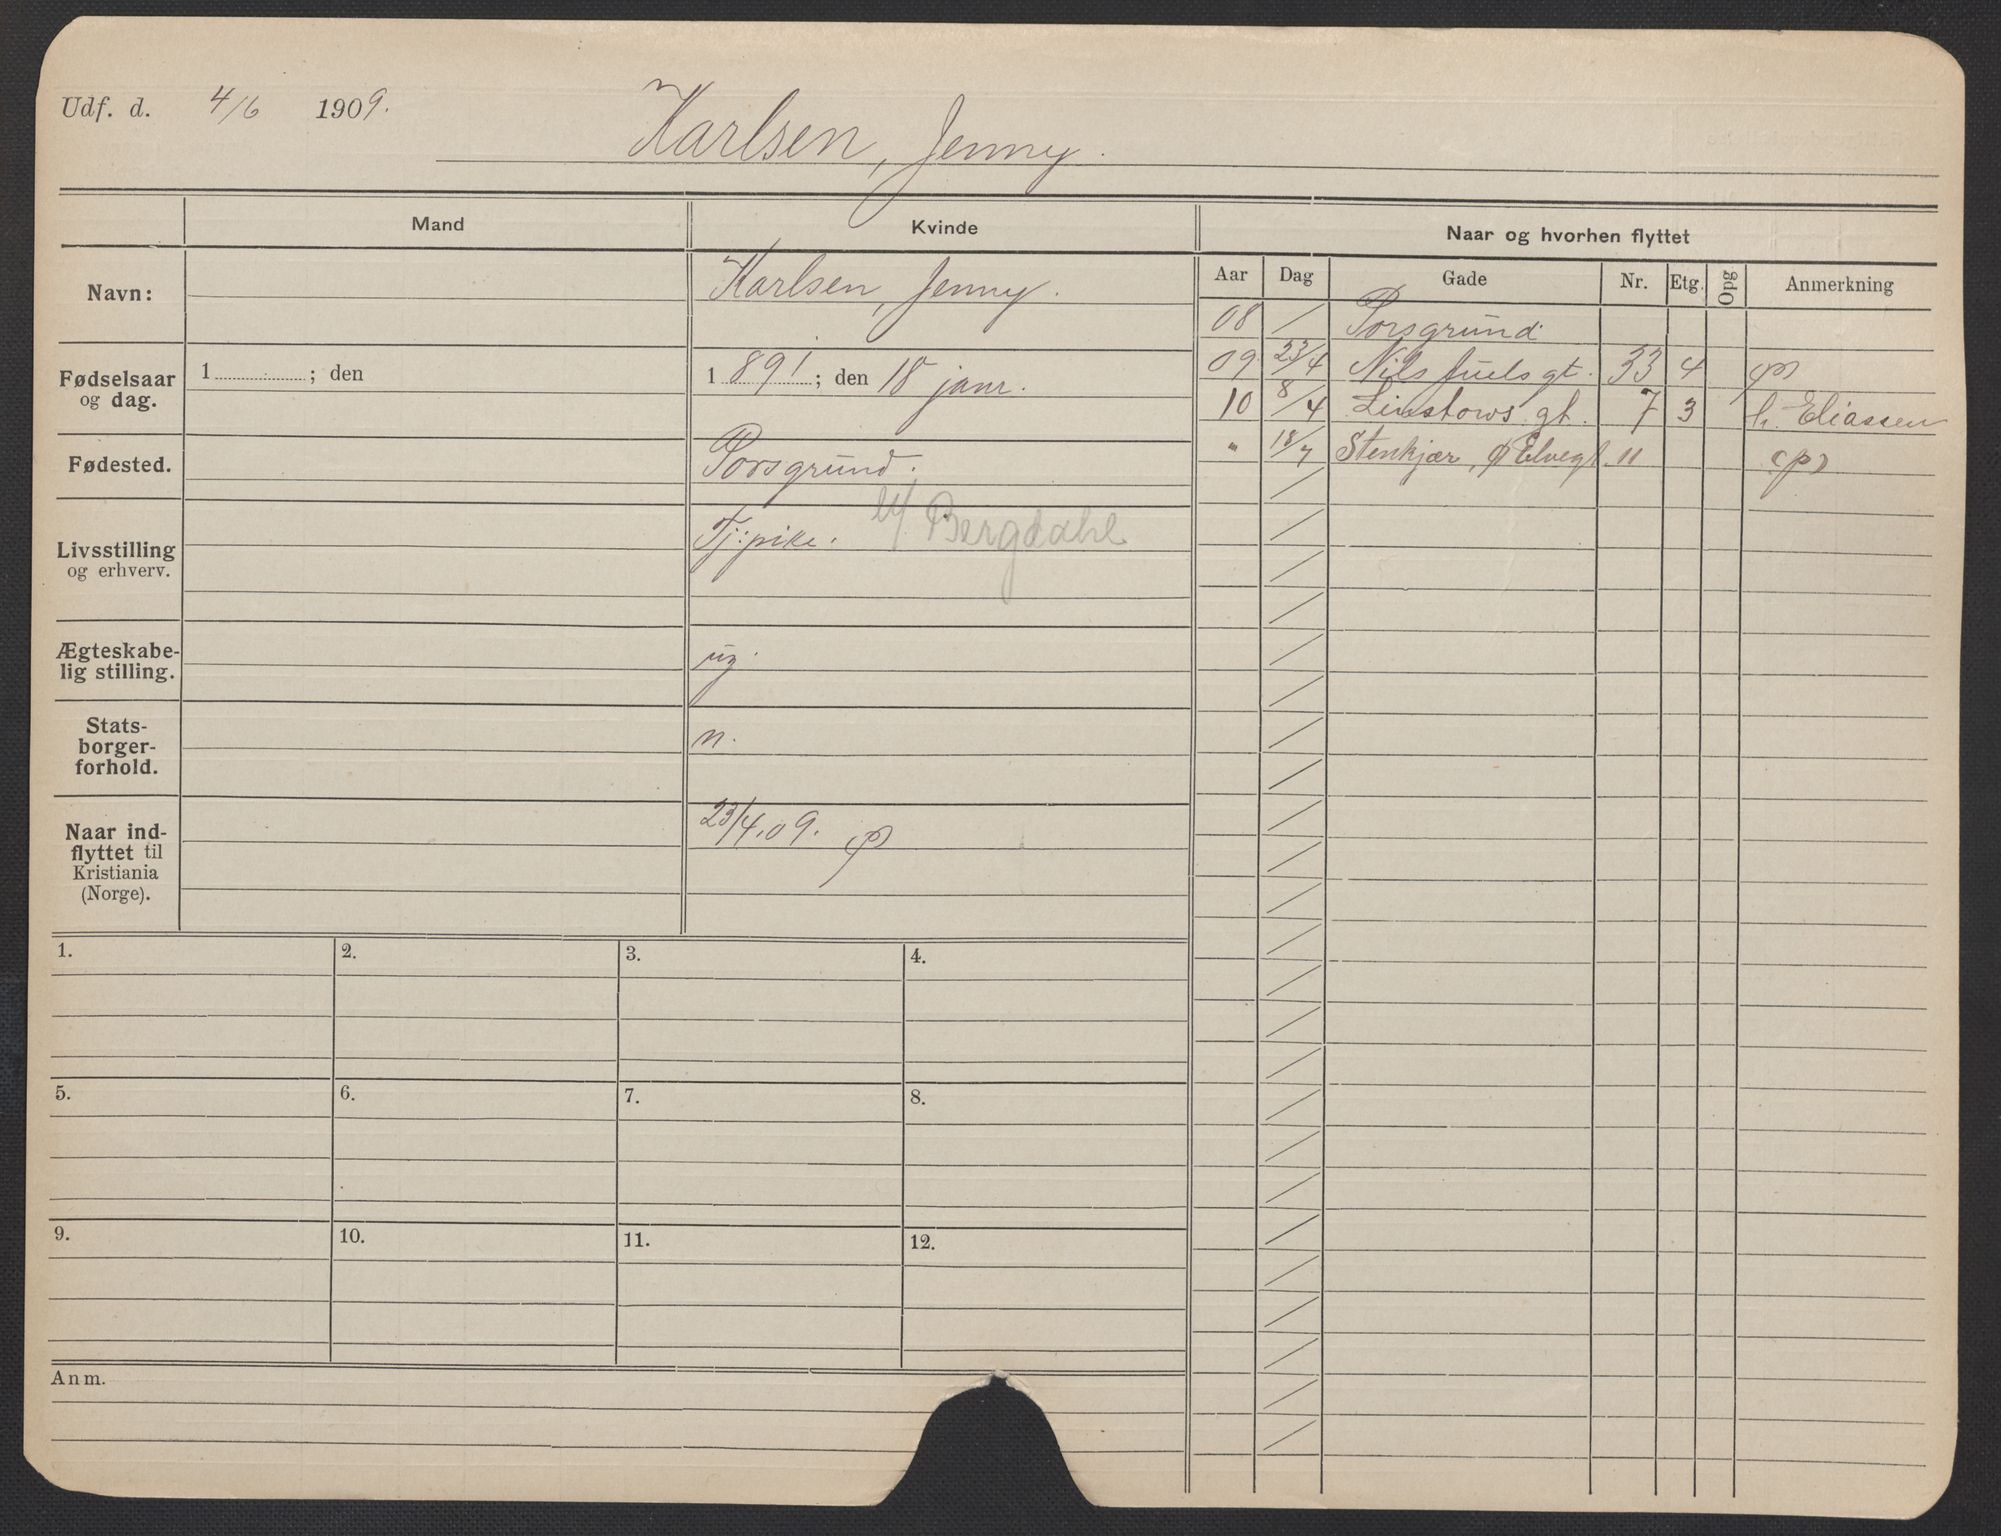 Udf. d. 4/6 1909.
Karlsen, Jenny.
Mand Kvinde Naar og hvorhen flyttet
Navn: Karlsen, Jenny.
Fødselsaar og dag. 1 ; den 1891 ; den 18 janr.
Fødested. Porsgrund.
Livsstilling og erhverv. Tj: pike. Bergdahl
Ægteskabe-
lig stilling. ug.
Stats-
borger-
forhold. n.
Naar ind-
flyttet til
Kristiania
(Norge). 23/4.09. (p)
Aar Dag Gade Nr. Etg. Opg Anmerkning
08 / Porsgrund.
09 23/4 Nils Juels gt. 33 4 (p)
10 8/4 Linstows gt. 7 3 h. Eliassen
" 18/7 Stenkjær, Elvegt. 11 (p)
1. 2. 3. 4.
5. 6. 7. 8.
9. 10. 11. 12.
Anm.